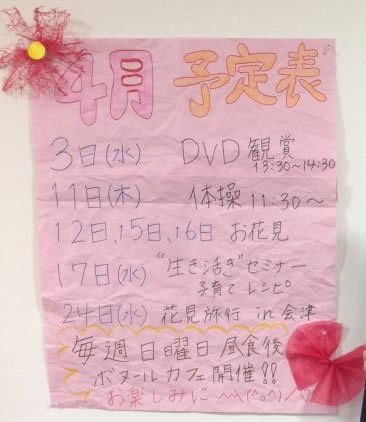 4月 予定表
3日(水) DVD観賞
13:30～14:30
11日(木) 体操 11:30～
12日、15日、16日 お花見
17日(水) "生き活き"セミナー
子育てレシピ
24日(水) 花見旅行 in 会津
毎週日曜日昼食後
ボヌールカフェ開催!!
お楽しみに〜〜\(^o^)/